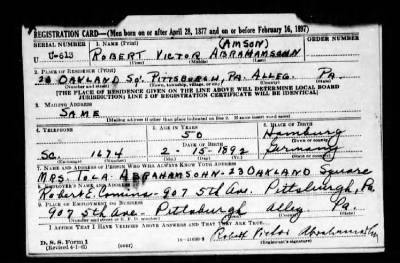 REGISTRATION CARD—(Men born on or after April 28, 1877 and on or before February 16, 1897)
SERIAL NUMBER 1. NAME (Print) ORDER NUMBER
(AMSON)
U U-613 ROBERT VICTOR ABRAHAMSOHN
(First) (Middle) (Last)
2. PLACE OF RESIDENCE (Print)
23 OAKLAND SQ. PITTSBURGH, PA. ALLEG. PA.
(Number and street) (Town, township, village, or city) (County) (State)
[THE PLACE OF RESIDENCE GIVEN ON THE LINE ABOVE WILL DETERMINE LOCAL BOARD
JURISDICTION; LINE 2 OF REGISTRATION CERTIFICATE WILL BE IDENTICAL]
3. MAILING ADDRESS
SAME
[Mailing address if other than place indicated on line 2. If same insert word same]
4. TELEPHONE 5. AGE IN YEARS 6. PLACE OF BIRTH
50 Hamburg
DATE OF BIRTH (Town or county)
Sc. 1674 2 - 15 - 1892 Germany
(Exchange) (Number) (Mo.) (Day) (Yr.) (State or country)
7. NAME AND ADDRESS OF PERSON WHO WILL ALWAYS KNOW YOUR ADDRESS
MRS. ABRAHAMSOHN - 23 OAKLAND Square
8. EMPLOYER'S NAME AND ADDRESS
Robert E. - 907 5th Ave. Pittsburgh, Pa
9. PLACE OF EMPLOYMENT OR BUSINESS
907 5th Ave. Pittsburgh Alleg Pa.
(Number and street or R. F. D. number) (Town) (County) (State)
I AFFIRM THAT I HAVE VERIFIED ABOVE ANSWERS AND THAT THEY ARE TRUE.
D. S. S. Form 1
(Revised 4-1-42) (over) Robert Victor Abrahamsohn